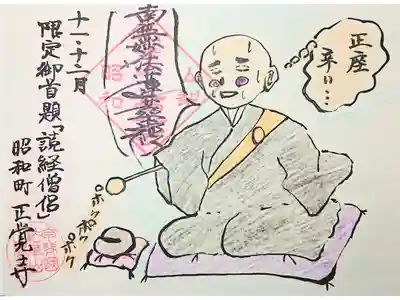 正座
辛い…
南無妙法蓮華経
ポク
ポク
ポク
十一・十二月
限定御首題「読経僧侶」
昭和町 正覚寺